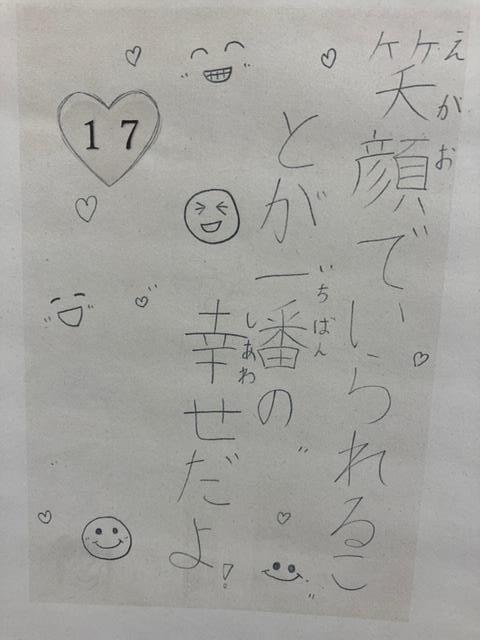 笑顔でいられるこ
えがお
とが一番の
いちばん
幸せだよ!
しあわ
17